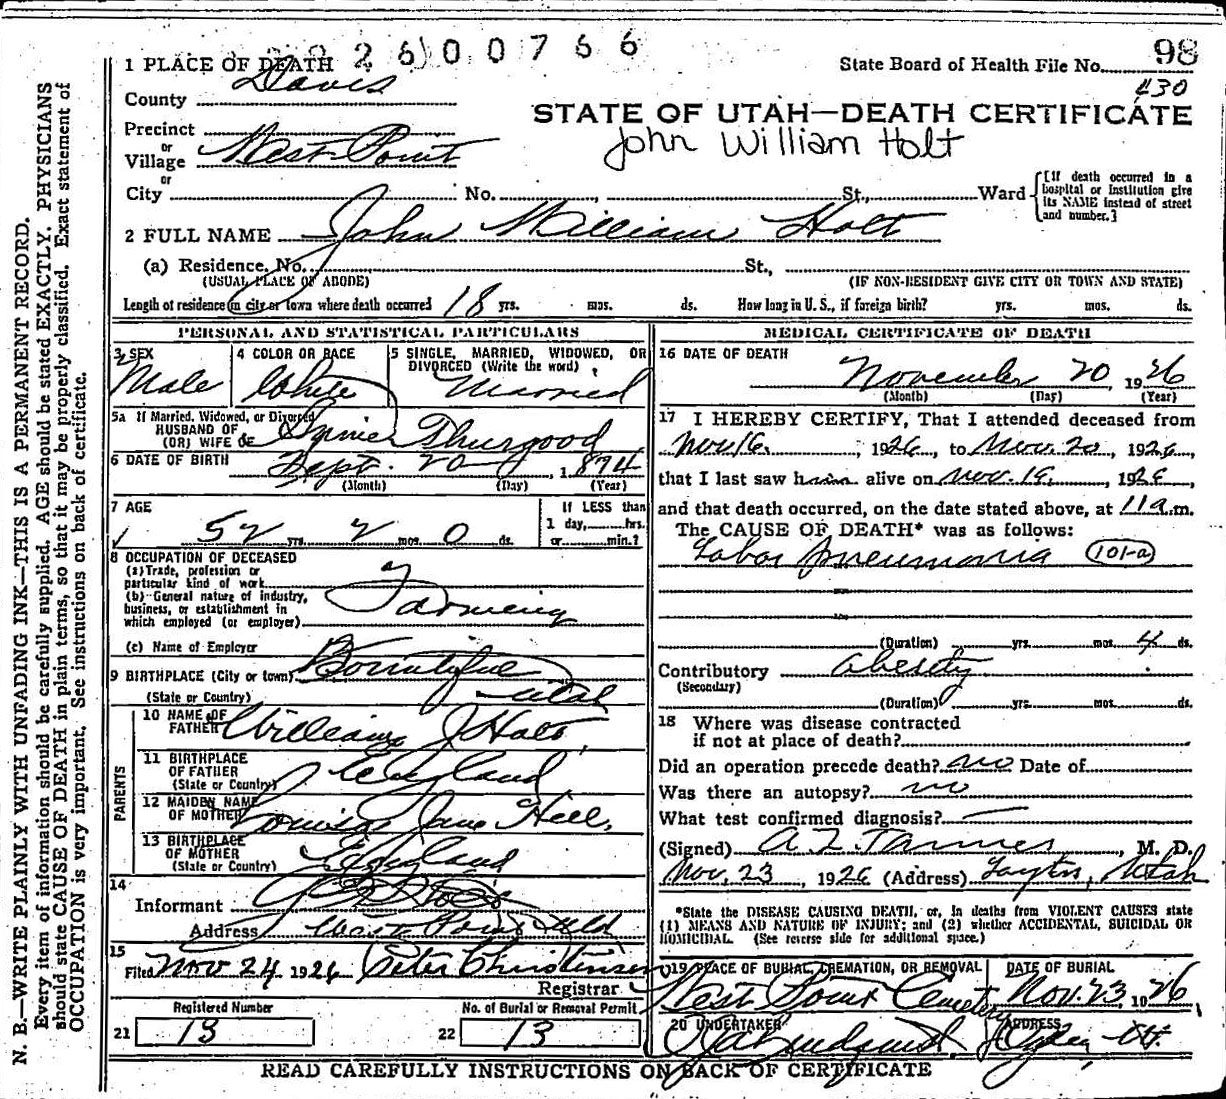 2600766
98
1 PLACE OF DEATH
State Board of Health File No.
430
County Davis
STATE OF UTAH—DEATH CERTIFICATE
John William Holt
Precinct
or
Village West Point
or
City No. St., Ward
[If death occurred in a hospital or Institution give its NAME instead of street and number.]
2 FULL NAME John William Holt
(a) Residence. No. St.,
(USUAL PLACE OF ABODE) (IF NON-RESIDENT GIVE CITY OR TOWN AND STATE)
Length of residence in city or town where death occurred 18 yrs. mos. ds. How long in U. S., if foreign birth? yrs. mos. ds.
PERSONAL AND STATISTICAL PARTICULARS
3 SEX
Male
4 COLOR OR RACE
White
5 SINGLE, MARRIED, WIDOWED, OR
DIVORCED (Write the word)
Married
5a If Married, Widowed, or Divorced
HUSBAND OF
(OR) WIFE OF Thurgood
6 DATE OF BIRTH Sept. 20, 1874
(Month) (Day) (Year)
7 AGE
52 yrs. 2 mos. 0 ds.
If LESS than
1 day, hrs.
or min.?
8 OCCUPATION OF DECEASED
(a) Trade, profession or
particular kind of work
(b) General nature of industry,
business, or establishment in
which employed (or employer) Farming
(c) Name of Employer
9 BIRTHPLACE (City or town) Bountiful
(State or Country) Utah
PARENTS
10 NAME OF
FATHER William J Holt
11 BIRTHPLACE
OF FATHER England
(State or Country)
12 MAIDEN NAME
OF MOTHER Louisa Jane Hill
13 BIRTHPLACE
OF MOTHER England
(State or Country)
14
Informant Holt
Address West Point
15
Filed Nov 24 1926 Peter Christensen
Registrar
Registered Number
21 13
No. of Burial or Removal Permit
22 13
MEDICAL CERTIFICATE OF DEATH
16 DATE OF DEATH
November 20 1926
(Month) (Day) (Year)
17 I HEREBY CERTIFY, That I attended deceased from
Nov 16, 1926, to Nov. 20, 1926,
that I last saw him alive on Nov. 19, 1926,
and that death occurred, on the date stated above, at 11 a. m.
The CAUSE OF DEATH* was as follows:
Lobor pneumonia 101-a
(Duration) yrs. mos. 4 ds.
Contributory Obesity
(Secondary)
(Duration) yrs. mos. ds.
18 Where was disease contracted
if not at place of death?
Did an operation precede death? no Date of
Was there an autopsy? no
What test confirmed diagnosis? —
(Signed) A Z Tanner, M. D.
Nov, 23, 1926 (Address) Layton, Utah
*State the DISEASE CAUSING DEATH, or, in deaths from VIOLENT CAUSES state
(1) MEANS AND NATURE OF INJURY; and (2) whether ACCIDENTAL, SUICIDAL OR
HOMICIDAL. (See reverse side for additional space.)
19 PLACE OF BURIAL, CREMATION, OR REMOVAL
West Point Cemetery
DATE OF BURIAL
Nov. 23, 1926
20 UNDERTAKER
Lindquist
ADDRESS
Ogden, Ut.
READ CAREFULLY INSTRUCTIONS ON BACK OF CERTIFICATE
N. B.—WRITE PLAINLY WITH UNFADING INK—THIS IS A PERMANENT RECORD.
Every item of information should be carefully supplied. AGE should be stated EXACTLY. PHYSICIANS
should state CAUSE OF DEATH in plain terms, so that it may be properly classified. Exact statement of
OCCUPATION is very important. See instructions on back of certificate.